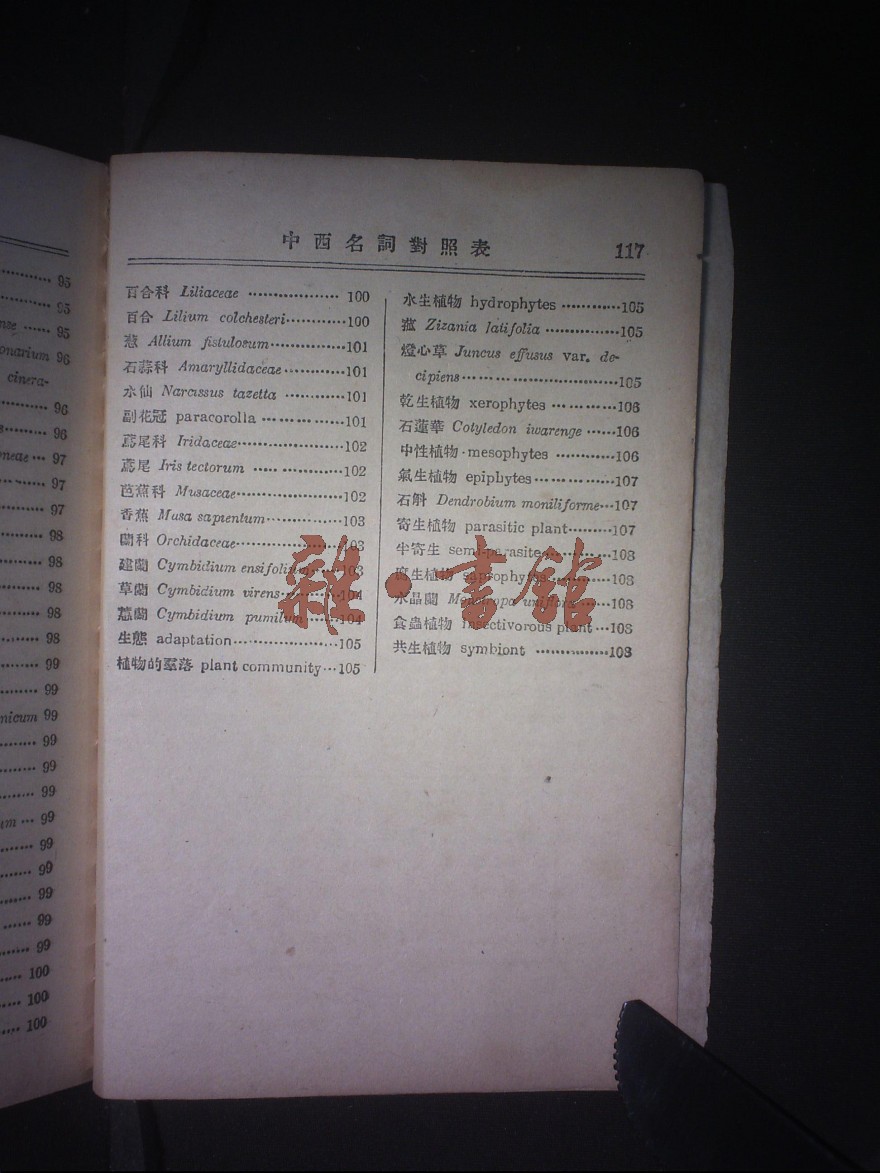 95
95
95
onarium 96
cinera-
96
96
neae ··· 97
97
97
98
98
98
98
98
99
99
nicum 99
99
99
99
99
99
99
99
99
99
100
100
100
中西名詞對照表 117
百合科 Liliaceae ·················· 100
百合 Lilium colchesteri············100
葱 Allium fistulosum···············101
石蒜科 Amaryllidaceae·············101
水仙 Narcissus tazetta ············101
副花冠 paracorolla ················101
鳶尾科 Iridaceae···················102
鳶尾 Iris tectorum ················102
芭蕉科 Musaceae···················102
香蕉 Musa sapientum···············103
蘭科 Orchidaceae···················103
建蘭 Cymbidium ensifolium······103
草蘭 Cymbidium virens············104
蕙蘭 Cymbidium pumilum·······104
生態 adaptation····················105
植物的羣落 plant community···105
水生植物 hydrophytes ············105
菰 Zizania latifolia ···············105
燈心草 Juncus effusus var. de-
cipiens·····························105
乾生植物 xerophytes ·············106
石蓮華 Cotyledon iwarenge ······106
中性植物·mesophytes ············106
氣生植物 epiphytes ···············107
石斛 Dendrobium moniliforme···107
寄生植物 parasitic plant·········107
半寄生 semi-parasite ············108
腐生植物 saprophytes ············108
水晶蘭 Monotropa uniflora ······108
食蟲植物 insectivorous plant ···108
共生植物 symbiont ···············108
雜·書館